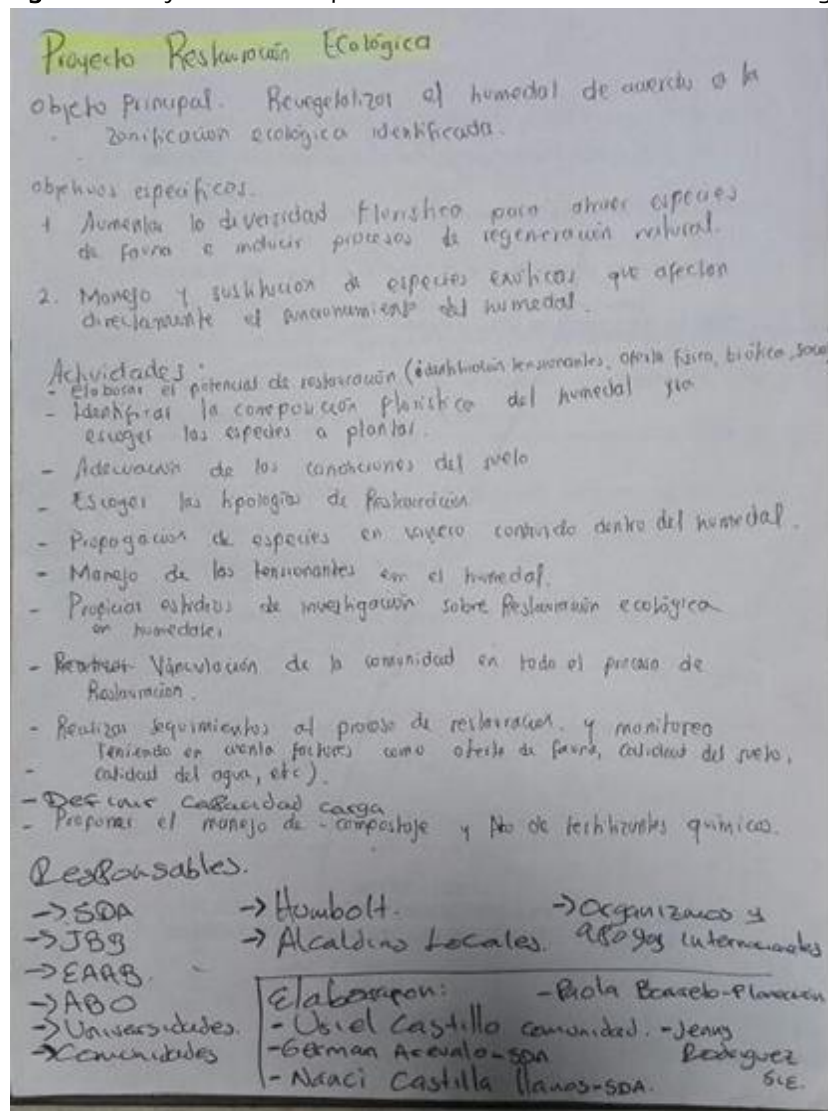 Proyecto Restauración Ecológica
objeto Principal. Revegetalizar el humedal de acuerdo a la
zonificación ecológica identificada.
objetivos especificos.
1 Aumentar la diversidad Floristica para atraer especies
de fauna e inducir procesos de regeneración natural.
2. Manejo y sustitución de especies exóticas que afectan
directamente el funcionamiento del humedal.
Actividades:
- Elaborar el potencial de restauración (identificación tensionantes, oferta física, biótica, socio
- Identificar la composición floristica del humedal
escoger las especies a plantar.
- Adecuación de las condiciones del suelo
- Escoger las tipologias de Restauración
- Propagación de especies en vivero construido dentro del humedal.
- Manejo de los tensionantes em el humedal.
- Propiciar estudios de investigación sobre Restauración ecológica
en humedales
- Vinculación de la comunidad en todo el proceso de
Restauración.
- Realizar seguimientos al proceso de restauración. y monitoreo
Teniendo en cuenta factores como oferta de fauna, calidad del suelo,
- calidad del agua, etc).
- Definir Capacidad carga
- Proponer el manejo de - compostaje y No de fertilizantes quimicos.
Responsables.
-> SDA -> Humbolt. -> Organizanos y
-> JBB -> Alcaldias Locales. apoyos internacionales
-> EAAB.
-> ABO Elaboraron: - Paola Planeación
-> Universidades. - Usiel Castillo comunidad. - Jenny
-> Comunidades - German Acevalo - SDA Rodriguez
- Nanci Castilla llanos - SDA.